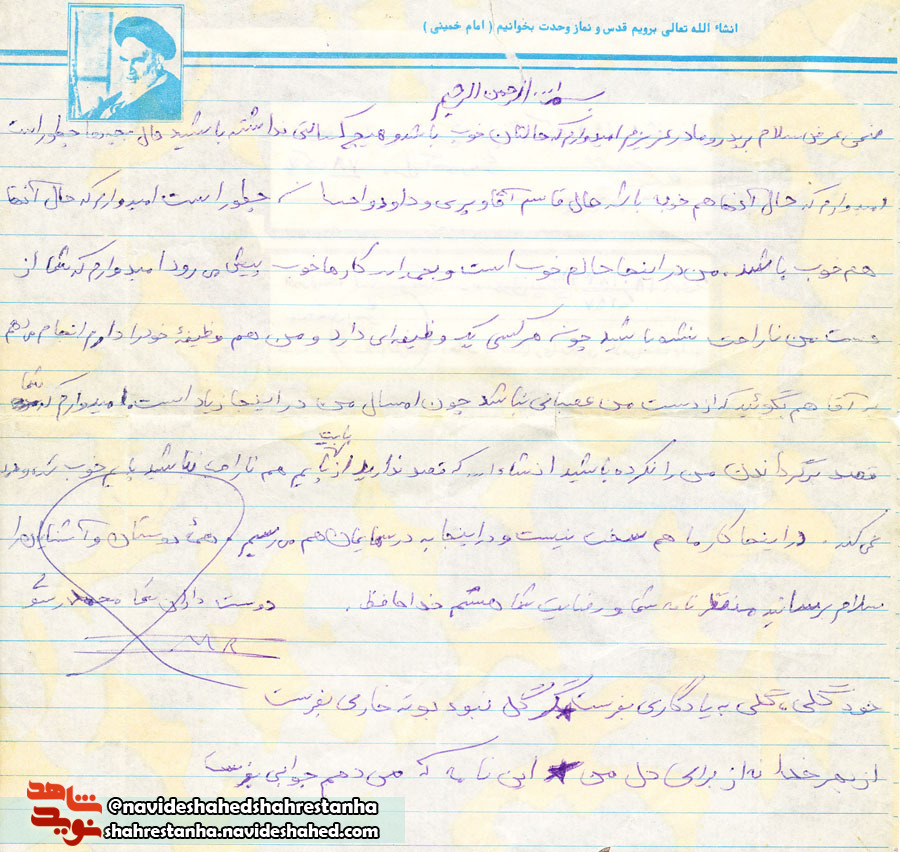 انشاء الله تعالی برویم قدس و نماز وحدت بخوانیم ( امام خمینی )
بسم الله الرحمن الرحیم
ضمن عرض سلام بر پدر و مادر عزیزم امیدوارم که حالتان خوب باشد و هیچ کسالتی نداشته باشید حال چطور است
امیدوارم که حال آنها هم خوب باشد حال قاسم آقا و پری و داود و احسان چطور است امیدوارم که حال آنها
هم خوب باشد. من در اینجا حالم خوب است و بحمدالله کارها خوب پیش می رود امیدوارم که شما از
دست من ناراحت نشده باشید چون هر کسی یک وظیفه ای دارد و من هم وظیفهٔ خود را دارم انجام می دهم
به آقا هم بگوئید که از دست من عصبانی نباشد چون امسال من در اینجا زیاد است. امیدوارم که شما
قصد برگرداندن من را نکرده باشید انشاءالله که قصد ندارید از بابت پایم هم ناراحت نباشید پایم خوب شده و درد
نمی کند. در اینجا کار ما هم سخت نیست و در اینجا به درسهایمان هم می رسیم. همهٔ دوستان و آشنایان را
سلام برسانید منتظر نامه شما و رضایت شما هستم خداحافظ. دوست دار شما محمد
M R
خود گلی، گلی به یادگاری بفرست گر گل نبود بوته خاری بفرست
از بهر خدا نه از برای دل من این نامه که می دهم جوابی بفرست
شاهد
نوید
@navideshahedshahrestanha
shahrestanha.navideshahed.com